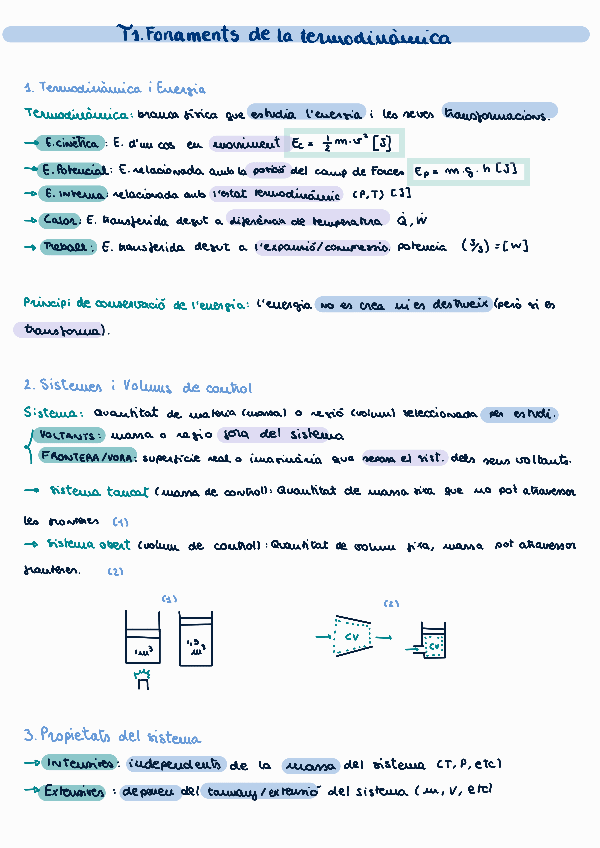 T1. Fonaments de la termodinàmica
1. Termodinàmica i Energia
Termodinàmica: branca física que estudia l'energia i les seves transformacions.
→ E.cinètica: E. d'un cos en moviment Ec = 1/2 m·v² [J]
→ E. Potencial: E. relacionada amb la posició del camp de Forces Ep = m·g·h [J]
→ E. interna: relacionada amb l'estat termodinàmic (P,T) [J]
→ Calor: E. transferida degut a diferència de temperatura Q̇, Ẇ
→ Treball: E. transferida degut a l'expansió/compressió. potència (J/s) = [W]
Principi de conservació de l'energia: l'energia no es crea ni es destrueix (però si es
transforma).
2. Sistemes i Volums de control
Sistema: Quantitat de matèria (massa) o regió (volum) seleccionada per estudi.
VOLTANTS: massa o regio fora del sistema
FRONTERA/VORA: superfície real o imaginària que separa el sist. dels seus voltants.
→ Sistema tancat (massa de control): Quantitat de massa fixa que no pot atravessar
les fronteres (1)
→ Sistema obert (volum de control): Quantitat de volum fixa, massa pot atravessar
fronteres. (2)
(1) (2)
1m³ 1,5 m³ CV CV
3. Propietats del sistema
→ Intensives: independents de la massa del sistema (T, P, etc)
→ Extensives: depenen del tamany/extensió del sistema (m, V, etc)